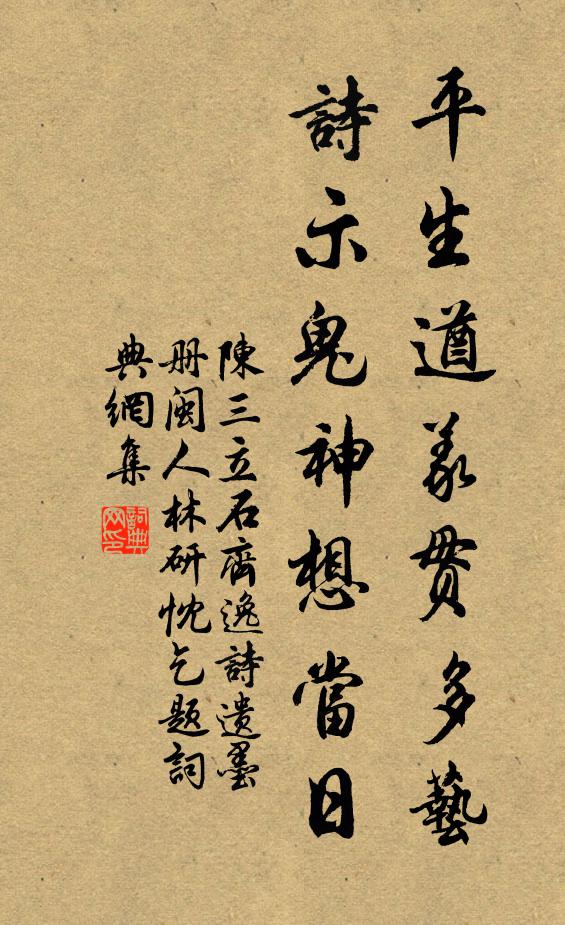 平生道義貫多藝
詩示鬼神想當日
陳三立石齊逸詩遺墨
册閩人林研忱乞題詞
典網集
詞典網印